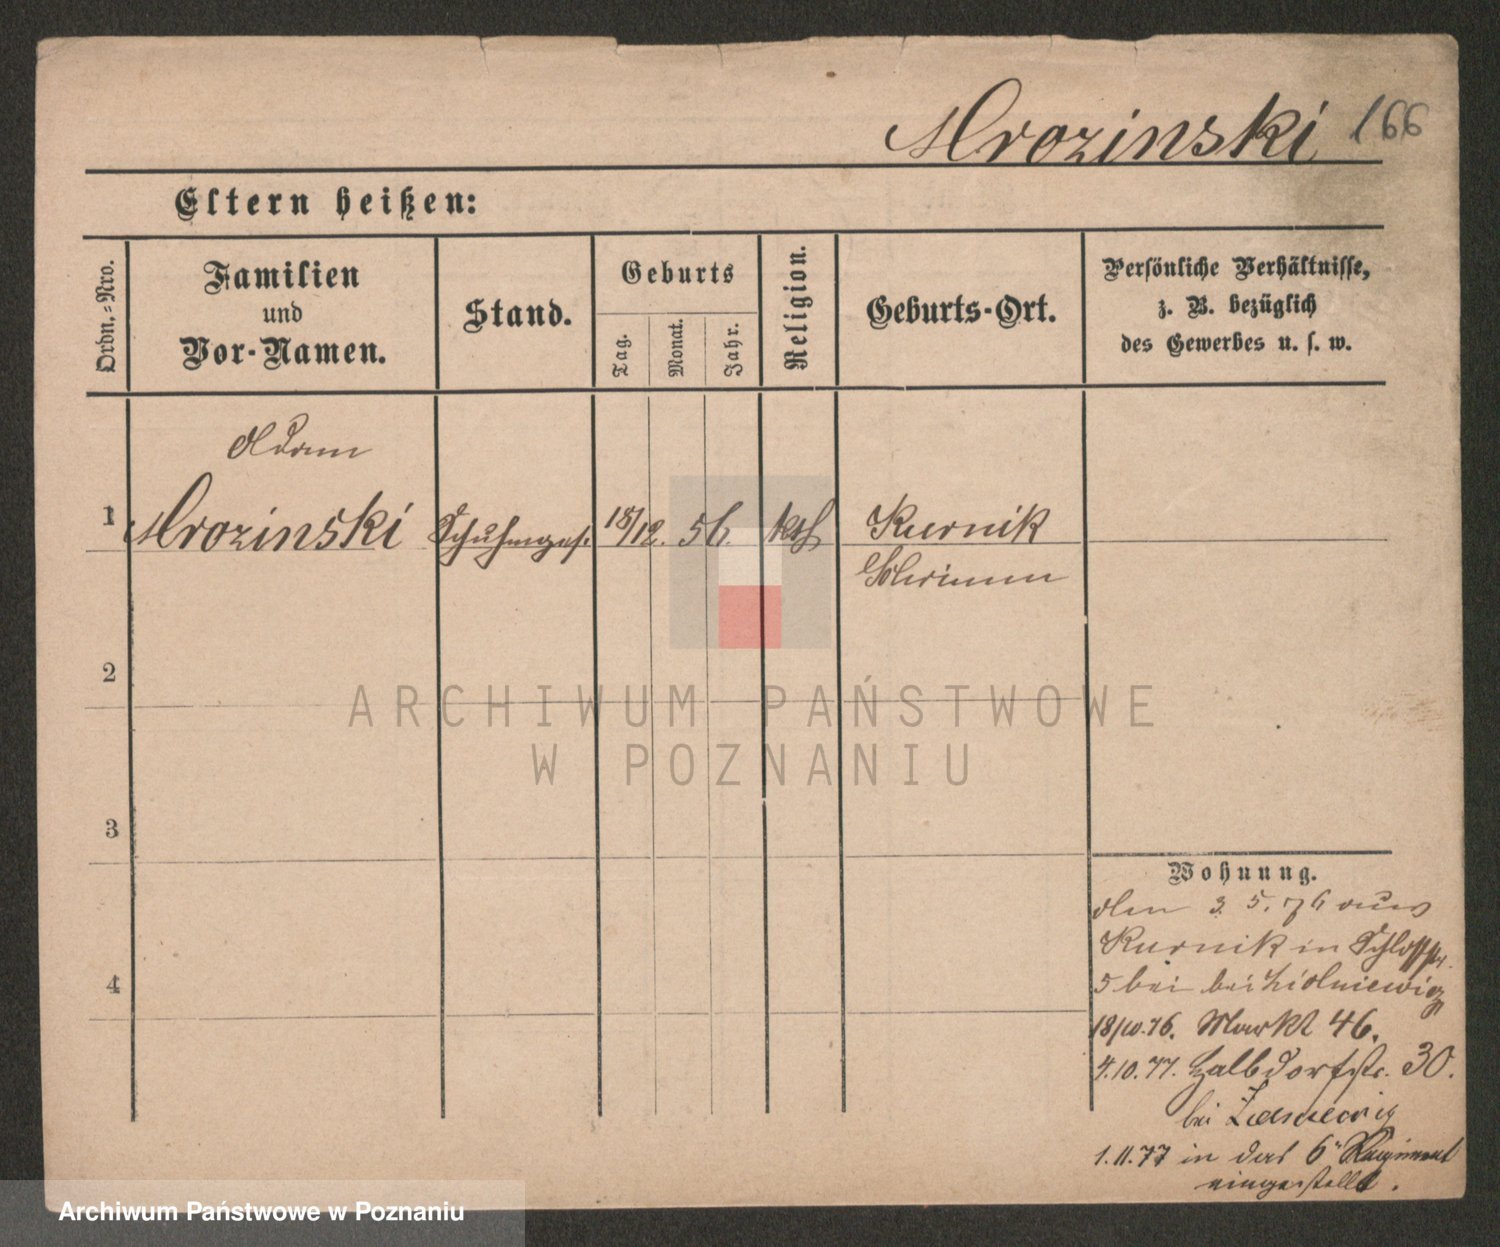 Mrozinski 166
Eltern heißen:
Ordn.-Nro.
Familien
und
Vor-Namen.
Stand.
Geburts
Tag.
Monat.
Jahr.
Religion.
Geburts-Ort.
Persönliche Verhältnisse,
z. B. bezüglich
des Gewerbes u. s. w.
Adam
1 Mrozinski Schuhmges. 18/12. 56. kth Kurnik
Schrimm
2
ARCHIWUM PAŃSTWOWE
W POZNANIU
3
Wohnung.
den 3 5. 76 aus
Kurnik in Schloßstr.
4
5 bei bei
18/10.76. Markt 46.
4.10.77. Halbdorfstr. 30.
bei
1.11.77 in das 6" Regiment
eingestellt.
Archiwum Państwowe w Poznaniu